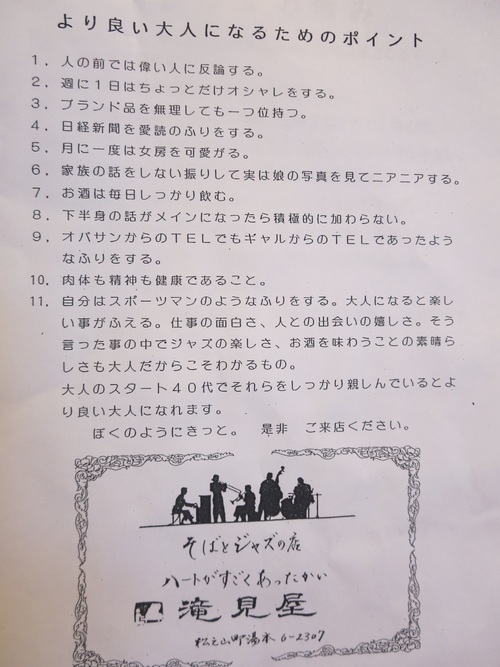 より良い大人になるためのポイント
1．人の前では偉い人に反論する。
2．週に1日はちょっとだけオシャレをする。
3．ブランド品を無理しても一つ位持つ。
4．日経新聞を愛読のふりをする。
5．月に一度は女房を可愛がる。
6．家族の話をしない振りして実は娘の写真を見てニアニアする。
7．お酒は毎日しっかり飲む。
8．下半身の話がメインになったら積極的に加わらない。
9．オバサンからのTELでもギャルからのTELであったよう
なふりをする。
10．肉体も精神も健康であること。
11．自分はスポーツマンのようなふりをする。大人になると楽し
い事がふえる。仕事の面白さ、人との出会いの嬉しさ。そう
言った事の中でジャズの楽しさ、お酒を味わうことの素晴ら
しさも大人だからこそわかるもの。
大人のスタート40代でそれらをしっかり親しんでいるとよ
り良い大人になれます。
ぼくのようにきっと。　是非　ご来店ください。
そばとジャズの店
ハートがすごくあったかい
滝見屋
松之山町湯本 6-2307